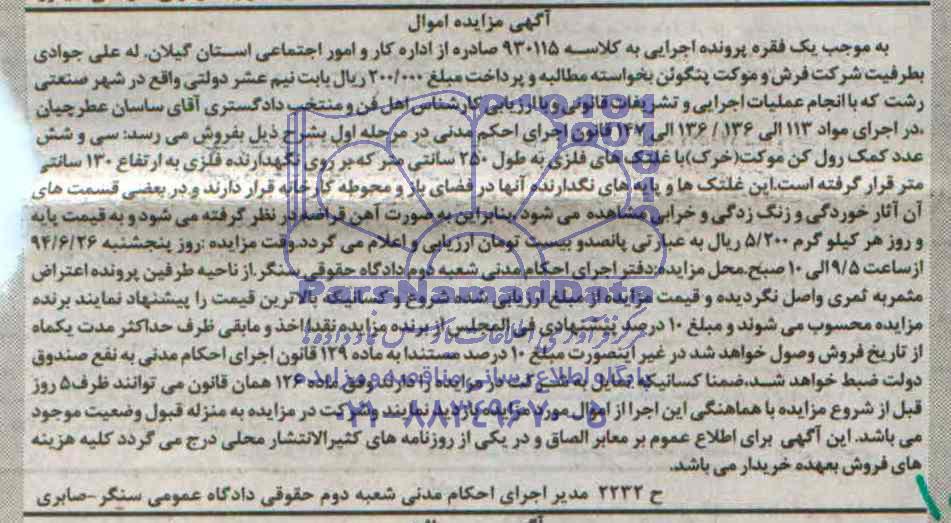 آگهی مزایده اموال
به موجب یک فقره پرونده اجرایی به کلاسه ۹۳۰۱۱۵ صادره از اداره کار و امور اجتماعی استان گیلان. له علی جوادی
بطرفیت شرکت فرش و موکت پتگوئن بخواسته مطالبه و پرداخت مبلغ ۲۰۰/۰۰۰ ریال بابت نیم عشر دولتی واقع در شهر صنعتی
رشت که با انجام عملیات اجرایی و تشریفات قانونی و با ارزیابی کارشناس اهل فن و منتخب دادگستری آقای ساسان عطرچیان
،در اجرای مواد ۱۱۳ الی ۱۳۶ / ۱۳۶ الی ۱۴۷ قانون اجرای احکم مدنی در مرحله اول بشرح ذیل بفروش می رسد: سی و شش
عدد کمک رول کن موکت(خرک)با غلتک های فلزی به طول ۲۵۰ سانتی متر که بر روی نگهدارنده فلزی به ارتفاع ۱۳۰ سانتی
متر قرار گرفته است.این غلتک ها و پایه های نگدارنده آنها در فضای باز و محوطه کارخانه قرار دارند و در بعضی قسمت های
آن آثار خوردگی و زنگ زدگی و خرابی مشاهده می شود ،بنابراین به صورت آهن قراضه در نظر گرفته می شود و به قیمت پایه
و روز هر کیلو گرم ۵/۲۰۰ ریال به عبارتی پانصدو بیست تومان ارزیابی و اعلام می گردد.وقت مزایده :روز پنجشنبه ۹۴/۶/۲۶
ازساعت ۹/۵ الی ۱۰ صبح.محل مزایده:دفتر اجرای احکام مدنی شعبه دوم دادگاه حقوقی سنگر.از ناحیه طرفین پرونده اعتراض
مثمربه ثمری واصل نگردیده و قیمت مزایده از مبلغ ارزیابی شده شروع و کسانیکه بالاترین قیمت را پیشنهاد نمایند برنده
مزایده محسوب می شوند و مبلغ ۱۰ درصد پیشنهادی فی المجلس از برنده مزایده نقدا اخذ و مابقی ظرف حداکثر مدت یکماه
از تاریخ فروش وصول خواهد شد در غیر اینصورت مبلغ ۱۰ درصد مستندا به ماده ۱۲۹ قانون اجرای احکام مدنی به نفع صندوق
دولت ضبط خواهد شد،ضمنا کسانیکه تمایل به شرکت در مزایده را دارند وفق ماده ۱۲۶ همان قانون می توانند ظرف ۵ روز
قبل از شروع مزایده با هماهنگی این اجرا از اموال مورد مزایده بازدید نمایند وشرکت در مزایده به منزله قبول وضعیت موجود
می باشد. این آگهی برای اطلاع عموم بر معابر الصاق و در یکی از روزنامه های کثیرالانتشار محلی درج می گردد کلیه هزینه
های فروش بعهده خریدار می باشد.
ح ۲۲۳۲ مدیر اجرای احکام مدنی شعبه دوم حقوقی دادگاه عمومی سنگر-صابری
ParsNamadData
پایگاه اطلاع رسانی مناقصه و مزایده
۰۲۱-۸۸۳۴۹۶۷۰-۵